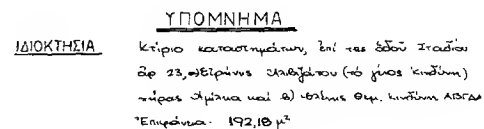 ΥΠΟΜΝΗΜΑ
ΙΔΙΟΚΤΗΣΙΑ Κτίριο καταστημάτων, ἐπί της ὁδοῦ Σταδίου
ἀρ 23, Εἰρήνης (τό γένος Κινδύνη)
χήρας Ἀμίλκα καί β) Ἑλένης Θεμ. Κινδύνη ΑΒΓΔΑ
Ἐπιφάνεια. 192,18 μ²